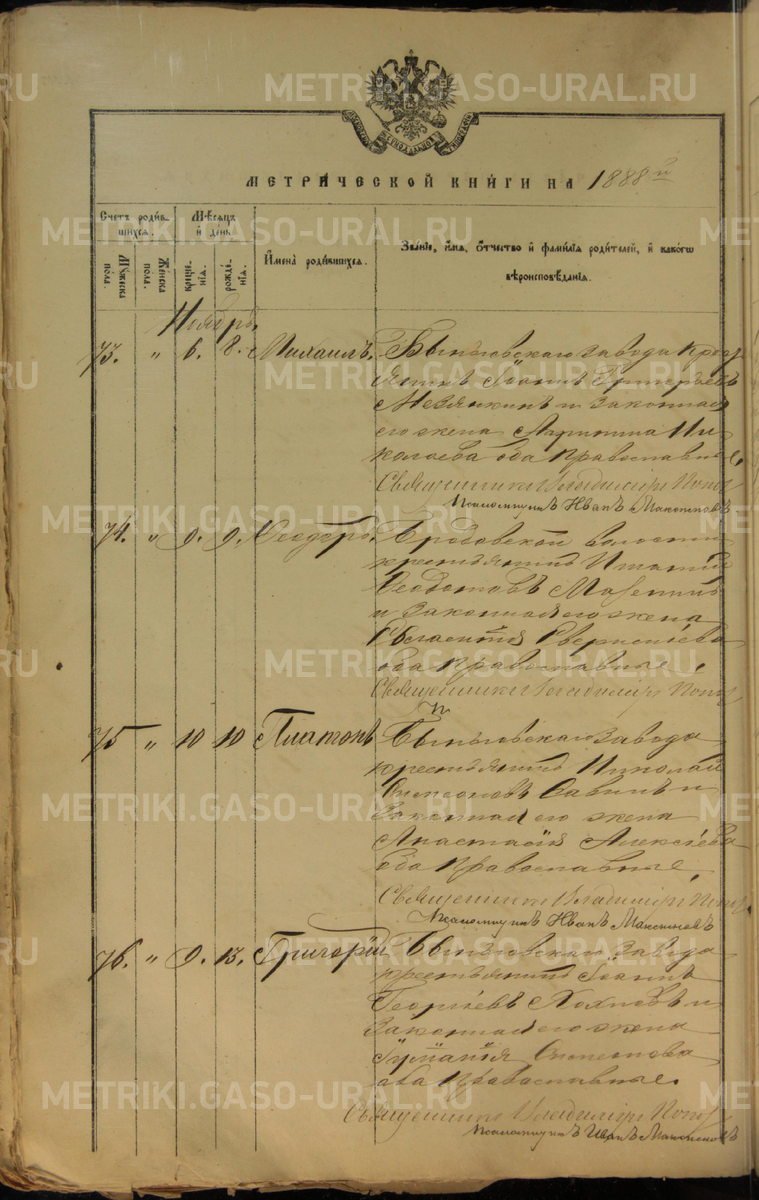 МЕТРИЧЕСКОЙ КНИГИ НА 1888й
Счетъ родив-
шихся.
Мѣсяцъ
и день
Имена родившихся.
Званіе, имя, отчество и фамилія родителей, и какого
вѣроисповѣданія.
Мужеска
пола
Женска
пола
креще-
нія.
рожде-
нія.
Ноябрь.
73. " 6. 8. Михаилъ. Быньговскаго завода крест
янинъ Іоаннъ Григорьевъ
и законная
его жена Ни-
колаева оба православные.
Священникъ Владиміръ Попов
Псаломщикъ Иванъ Максимовъ
74. " 9. 9. Ѳеодоръ. Бродовской волости
крестьянинъ Игнатій
Ѳеодотовъ
и законная его жена
оба православные.
Священникъ Владиміръ Попов
75 " 10 10 Платонъ Быньговскаго завода
крестьянинъ Николай
Симеоновъ Савинъ и
законная его жена
Анастасія Алексѣева
оба православные.
Священникъ Владиміръ Попов
Псаломщикъ Иванъ Максимовъ
76. " 9. 13. Григорій Быньговскаго завода
крестьянинъ Іоаннъ
Георгіевъ и
законная его жена
Іуліанія Симеонова
оба православные.
Священникъ Владиміръ Попов
Псаломщикъ Иванъ Максимовъ
METRIKI.GASO-URAL.RU